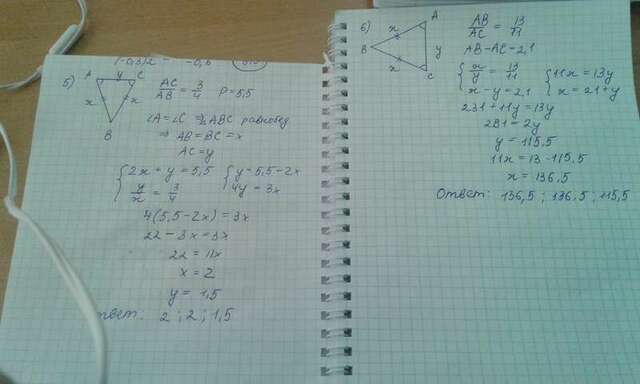 5)
A y C
x x
B
AC/AB = 3/4 P=5,5
∠A=∠C ⇒ △ABC равнобед
⇒ AB=BC=x
AC=y
{2x+y=5,5 {y=5,5-2x
{y/x=3/4 {4y=3x
4(5,5-2x)=3x
22-8x=3x
22=11x
x=2
y=1,5
ответ: 2; 2; 1,5
6)
A
x
B y
x
C
AB/AC = 13/11
AB-AC=2,1
{x/y=13/11 {11x=13y
{x-y=2,1 {x=21+y
231+11y=13y
231=2y
y=115,5
11x=13·115,5
x=136,5
Ответ: 136,5; 136,5; 115,5